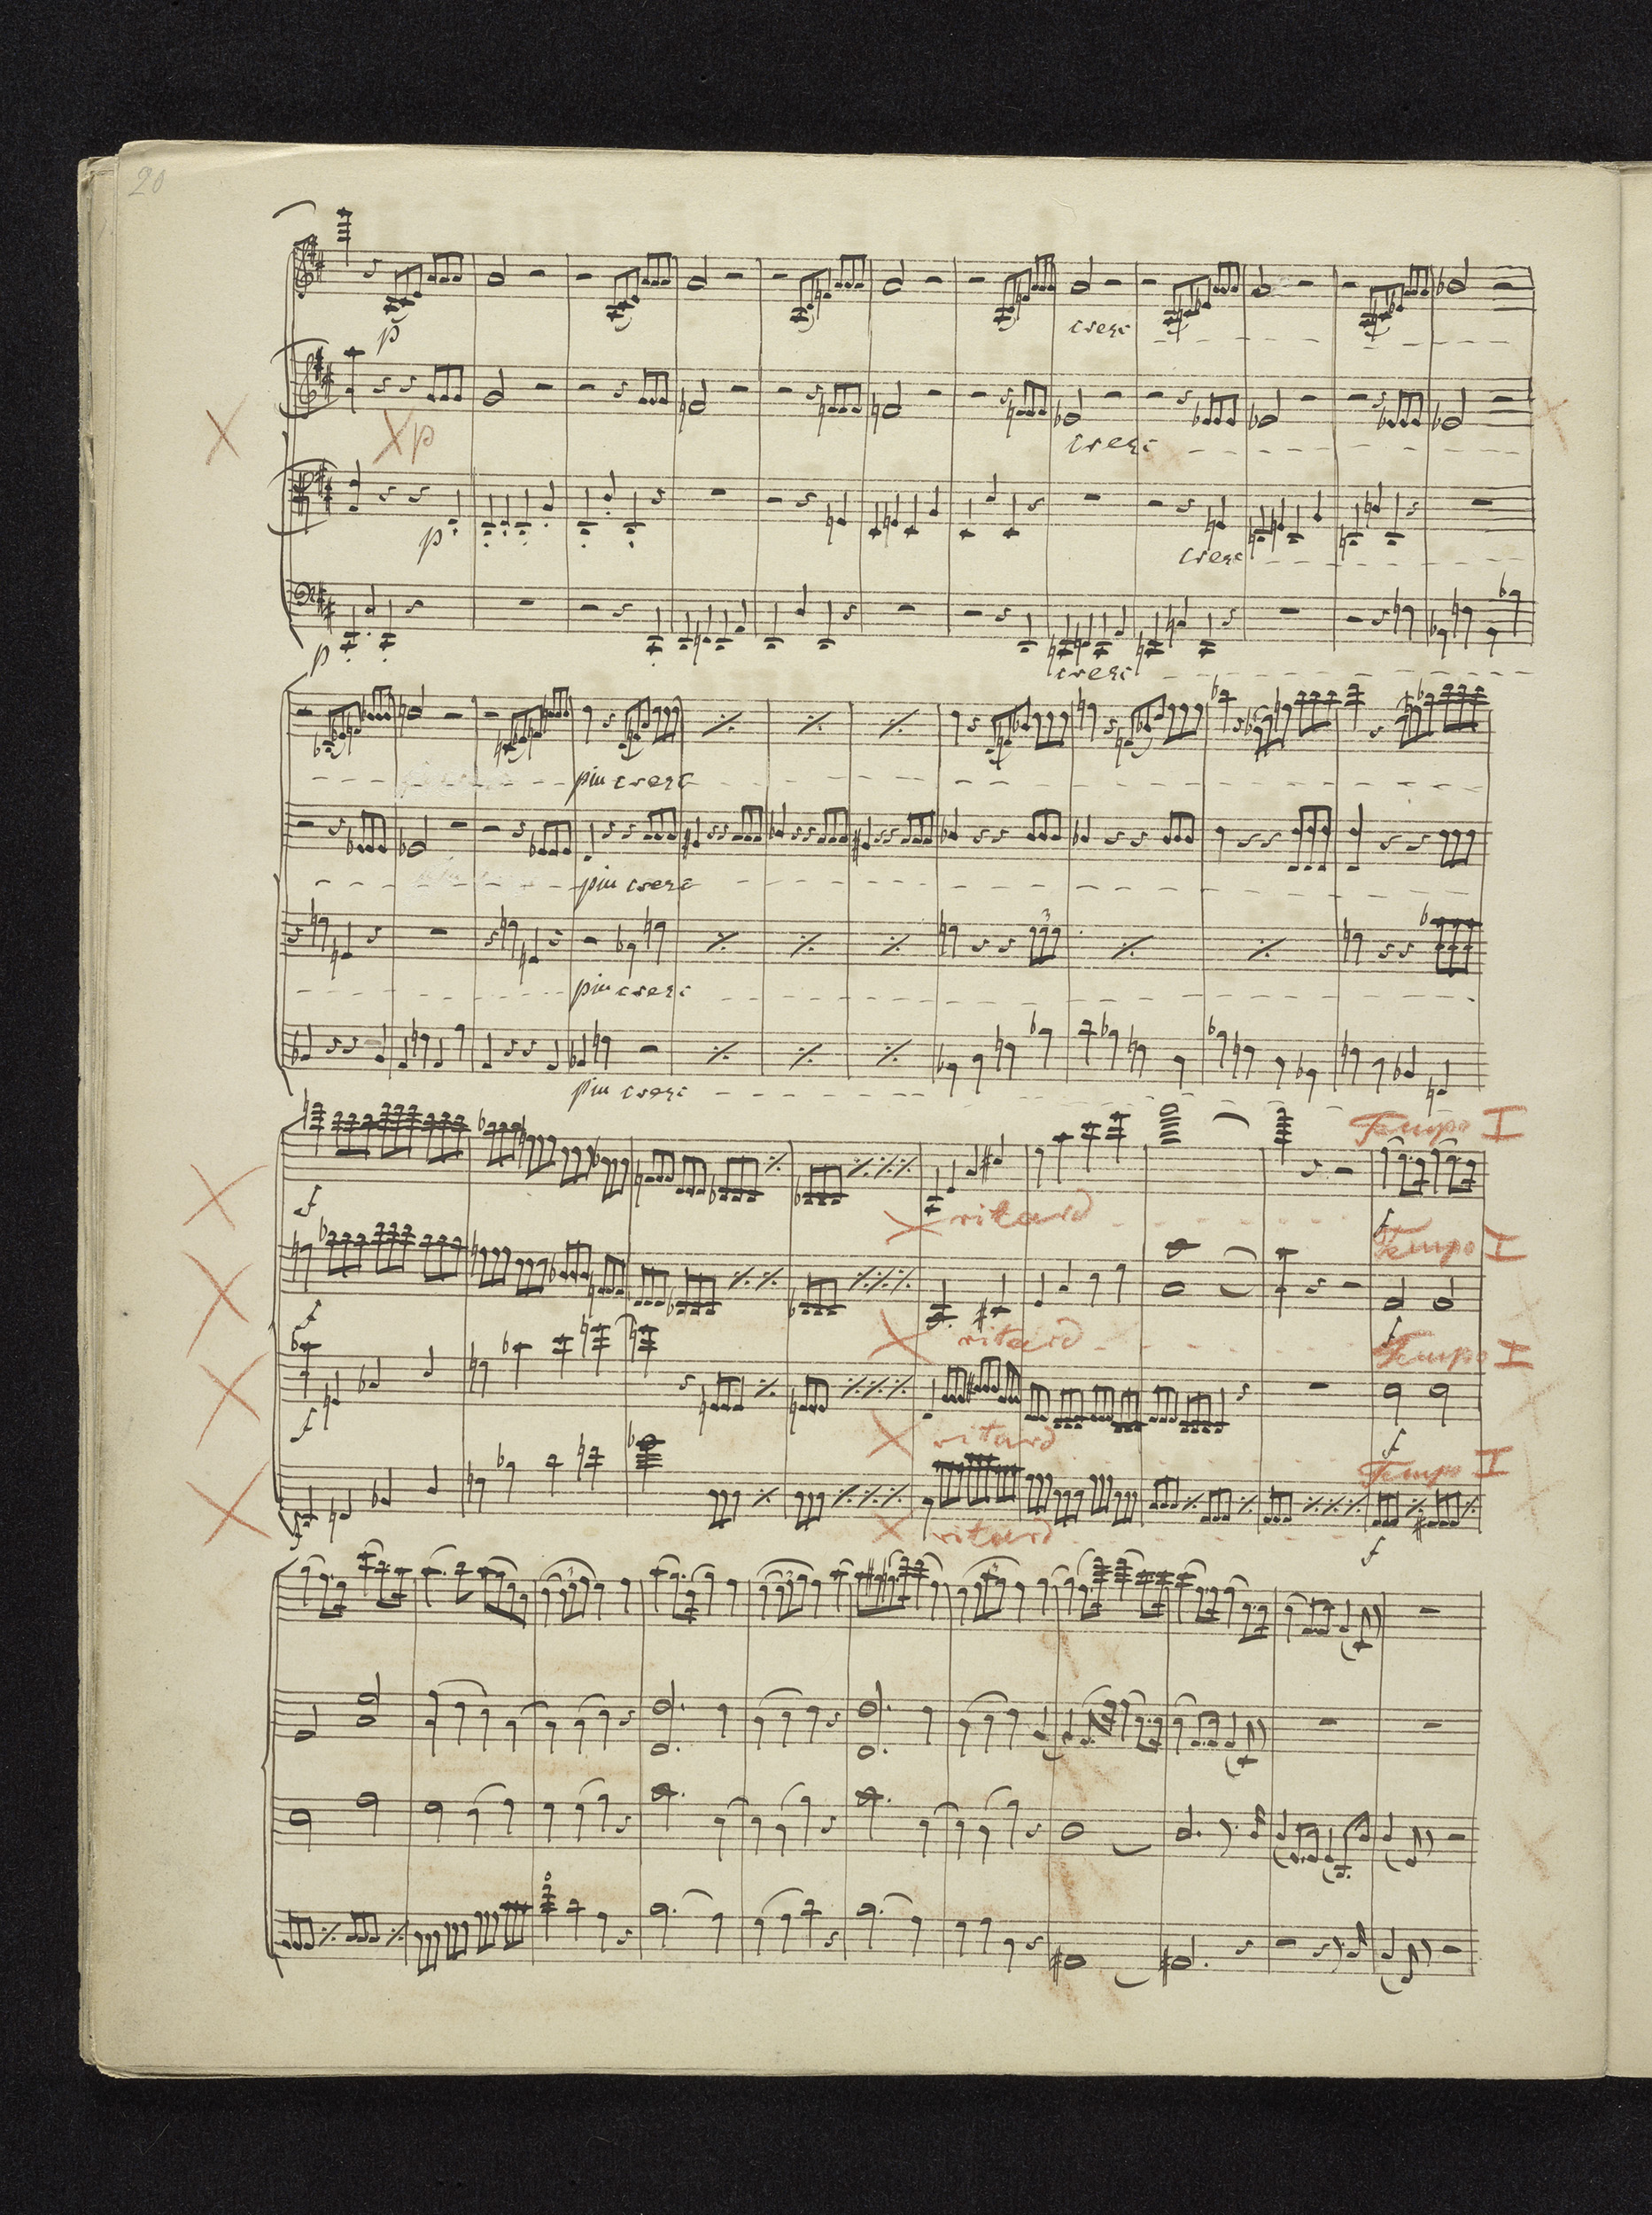 20
p
cresc
X
X p
cresc
X
p
cresc
p
cresc
piu cresc
piu cresc
piu cresc
piu cresc
Tempo I
X
f
X ritard
f
Tempo I
X
f
X ritard
f
Tempo I
X
f
X ritard
f
Tempo I
X
f
X ritard
f